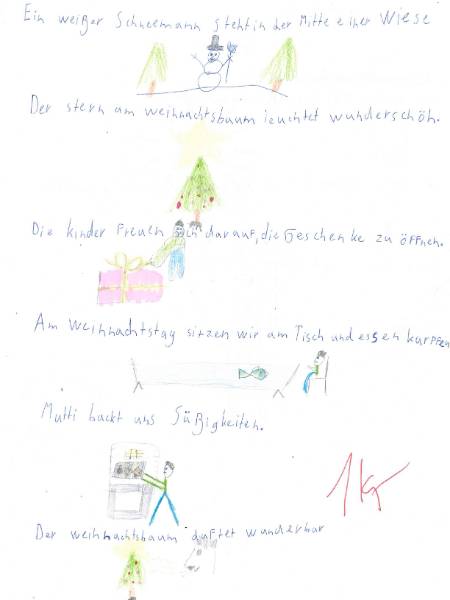 Ein weißer Schneemann steht in der Mitte einer Wiese
Der stern am weihnachtsbaum leuchtet wunderschön.
Die kinder Freuen sich darauf, die Geschenke zu öffnen.
Am Weihnachtstag sitzen wir am Tisch und essen karpfen
Mutti backt uns Süßigkeiten.
Der weihnachtsbaum duftet wunderbar